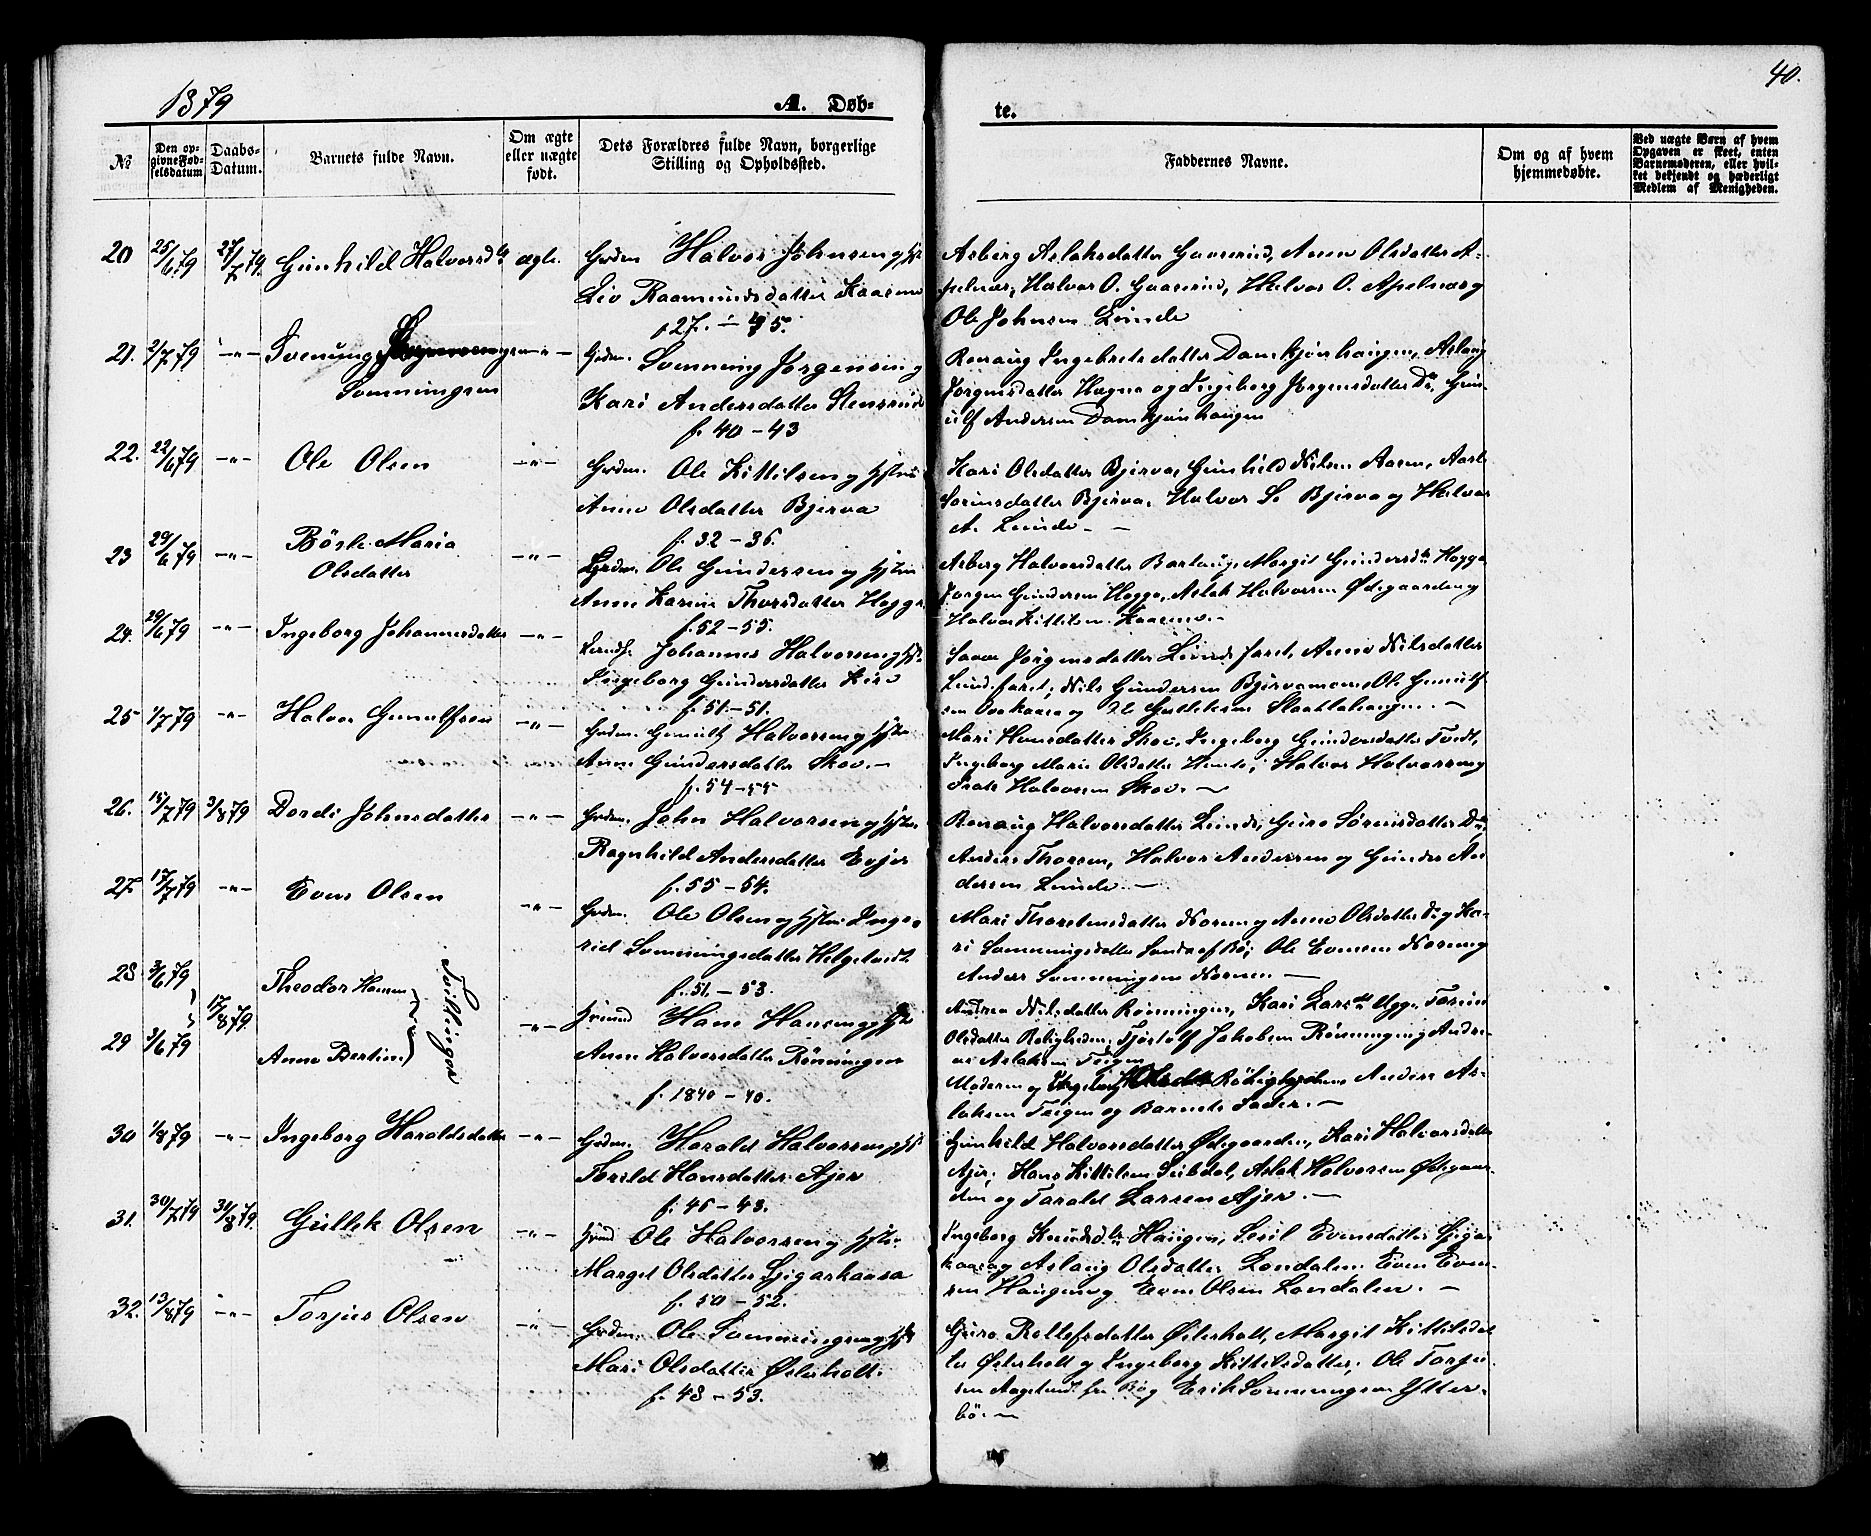 1879
A. Døb-
te.
40.
No
Den op-
givne Fød-
selsdatum
Daabs-
Datum.
Barnets fulde Navn.
Om ægte
eller uægte
født.
Dets Forældres fulde Navn, borgerlige
Stilling og Opholdssted.
Faddernes Navne.
Om og af hvem
hjemmedøbte.
Ved uægte Børn af hvem
Opgaven er skeet, enten
Barnemoderen, eller hvil-
ket bekjendt og hæderligt
Medlem af Menigheden.
20 25/6 79 27/7 79. Gunhild Halvorsdtr ægte. Grdm. Halvor Johnsen og
Liv Raamundsdatter Kaasene
f 27. - 45.
Asberg Aslaksdatter Anne Olsdatter A-
Halvor O. Halvor O. Apelnæs og
Ole Johnsen Lunde
21. 2/7 79 -"- Svenung
Sveinungsen -"- Grdm. Jørgensen og
Kari Andersdatter Stensrud
f. 40 - 43
Ronaug Ingebretsdatter Damkjønhaugen, Aslaug
Jørgensdatter Hægna og Ingeborg Jørgensdatter Ds, Gun-
ulf Andersen Damkjønhaugen
22. 22/6 79 -"- Ole Olsen -"- Grdm. Ole Kittilsen og Hstru
Anne Olsdatter Bjerva
f. 32 - 36.
Kari Olsdatter Bjerva, Gunhild Nilsen Aasen,
Bjerva, Halvor S. Bjerva og Halvor
A. Lunde. -
23 29/6 79 -"- Børte Maria
Olsdatter -"- Grdm. Ole Gundersen og Hstru
Anne Karine Thorsdatter Hogga
f. 52 - 55.
Asberg Halvorsdatter Margit Gundersdtr Hogga
Jørgen Gundersen Hogga, Aslak Halvorsen Ødegaarden og
Halvor Kittilsen Kaasene. -
24. 29/6 79 -"- Ingeborg Johannesdatter -"- Johannes Halvorsen og
Ingeborg Gundersdatter
f. 51 - 51.
Jørgensdatter Lundefaret, Anne Nilsdatter
Lundefaret, Nils Gundersen Ole Gunulf
25 1/7 79 -"- Halvor Gunulfsen -"- Grdm. Gunulf Halvorsen og Hstru
Anne Gundersdatter Skov. -
f. 54 - 55
Mari Hansdatter Skov, Ingeborg Gundersdatter Tvedt,
Ingeborg Marie Olsdatter Halvor Halvorsen og
Halvorsen Skov. -
26. 15/7 79 3/8 79 Dordi Johnsdatter -"- Grdm. John Halvorsen og Hstru
Ragnhild Andersdatter Evju
f. 55 - 54.
Ronaug Halvorsdatter Lunde, Guro Sørensdatter Ds,
Anders Thorsen, Halvor Andersen og Gunder An-
dersen Lunde. -
27. 17/7 79 -"- Even Olsen -"- Grdm. Ole Olsen og Hstru Inge-
rid Sveinungsdatter Helgetveit
f. 51 - 53.
Mari Thorstensdatter Norem og Anne Olsdatter Ds og Ka-
ri Sveinungsdatter af Bø; Ole Evensen Norem og
Anders Sveinungsen Norem. -
28 3/6 79 17/8 79. Theodor Hansen Tvillinger
29 3/6 79 Anne Bertine -"- Hans Hansen og
Anne Halvorsdatter Rønningen
f. 1840 - 40.
Andrea Nilsdatter Rønningen, Kari Larsdtr Ugge, Torine
Olsdatter Roligheden, Tjostolf Jakobsen Rønningen og Andre-
as Aslaksen Teigen
Moderen og Ingeborg Anders As-
laksen Teigen og Barnets Fader. -
30 1/8 79 -"- Ingeborg Haraldsdatter -"- Grdm. Harald Halvorsen og
Torild Hansdatter Ajer
f. 45 - 48.
Gunhild Halvorsdatter Ødegaarden, Kari Halvorsdatter
Ajer, Hans Kittilsen Seibdal, Aslak Halvorsen Ødegaar-
den og Tarald Larsen Ajer. -
31. 30/7 79 31/8 79. Gullik Olsen -"- Ole Halvorsen og Hstru
Marget Olsdatter Gjigarkaasa
f. 50 - 52.
Ingeborg Haugen, Sesil Evensdatter Gjigar-
kaasa og Aslaug Olsdatter Londalen, Even Even-
sen Haugen og Even Olsen Londalen. -
32. 13/8 79 -"- Torjus Olsen -"- Grdm. Ole Sveinungsen og
Mari Olsdatter Østerholt.
f. 48 - 53.
Guro Rollefsdatter Østerholt, Margit Kittilsdat-
ter Østerholt og Ingeborg Kittilsdatter, Ole Torju-
sen fra Bø og Erik Sveinungsen Ytter-
bø. -